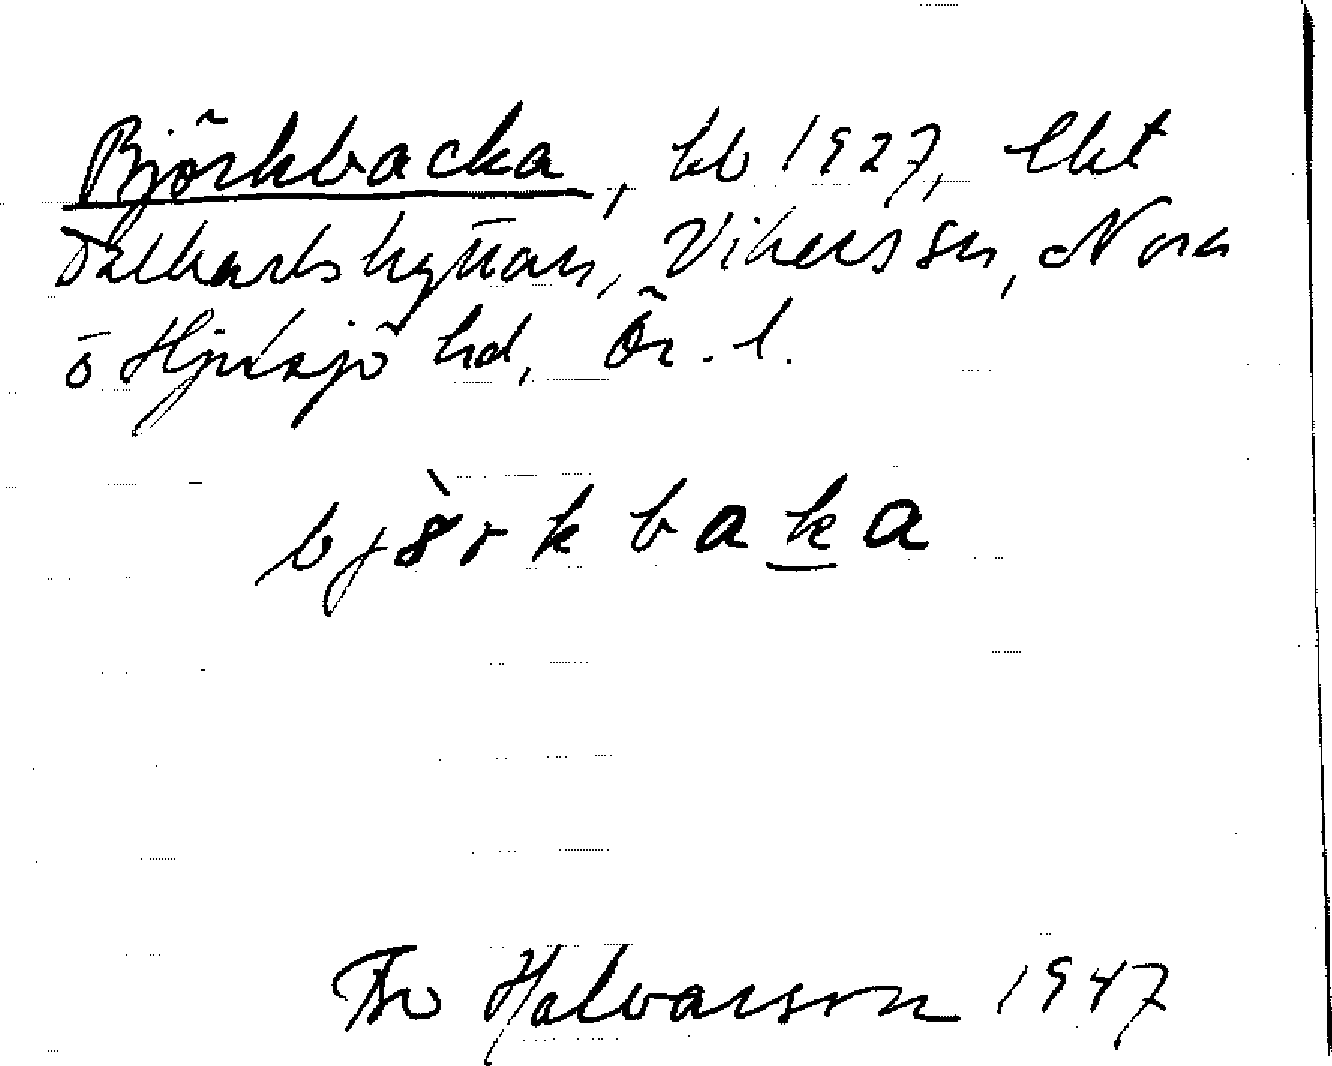 Björkbacka, kb 1927, lht
Dalkarlshyttan, Vikers sn, Nora
o Hjulsjö hd, Ör. l.
bjö̀rkbaka
Halvarson 1947